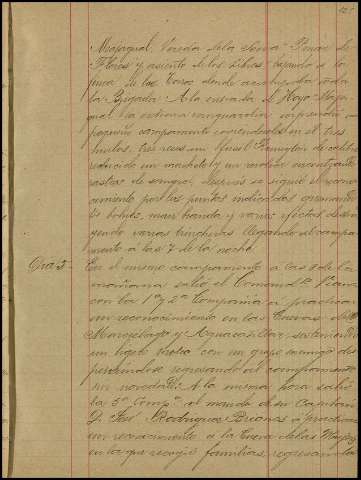 Majagual, Vereda de la Sierra, Pinar de
Flores y asiento de los Chivos bajando a la
finca de las Toros, donde acampaba toda
la Brigada. A la entrada de Hoyo Maja-
gual la extrema vanguardia sorprendió un
pequeño campamento cogiéndoles en el tres
mulos, tres reses un fusil Remington de calibre
reducido un machete y un morral encontrándose
rastros de sangre, después se siguió el recono-
cimiento por los puntos indicados quemando
bohios, varios efectos destru-
yendo varias trincheras llegando al campa-
mento á las 7 de la noche
Día 5 - En el mismo campamento a las 8 de la
mañana salió el Comandte
con la 1ª y 2ª Compañía á practicar
un reconocimiento en las Cuevas de
y Aguacatillar, sosteniendo
un ligero tiroteo con un grupo enemigo dis-
persándose regresando al campamento
sin novedad. A la misma hora salió
la 5ª Compª al mando de su Capitán
D. José Rodríguez á practicar
un reconocimiento a la Cueva de las Mujeres
en la que recogió familias, regresando